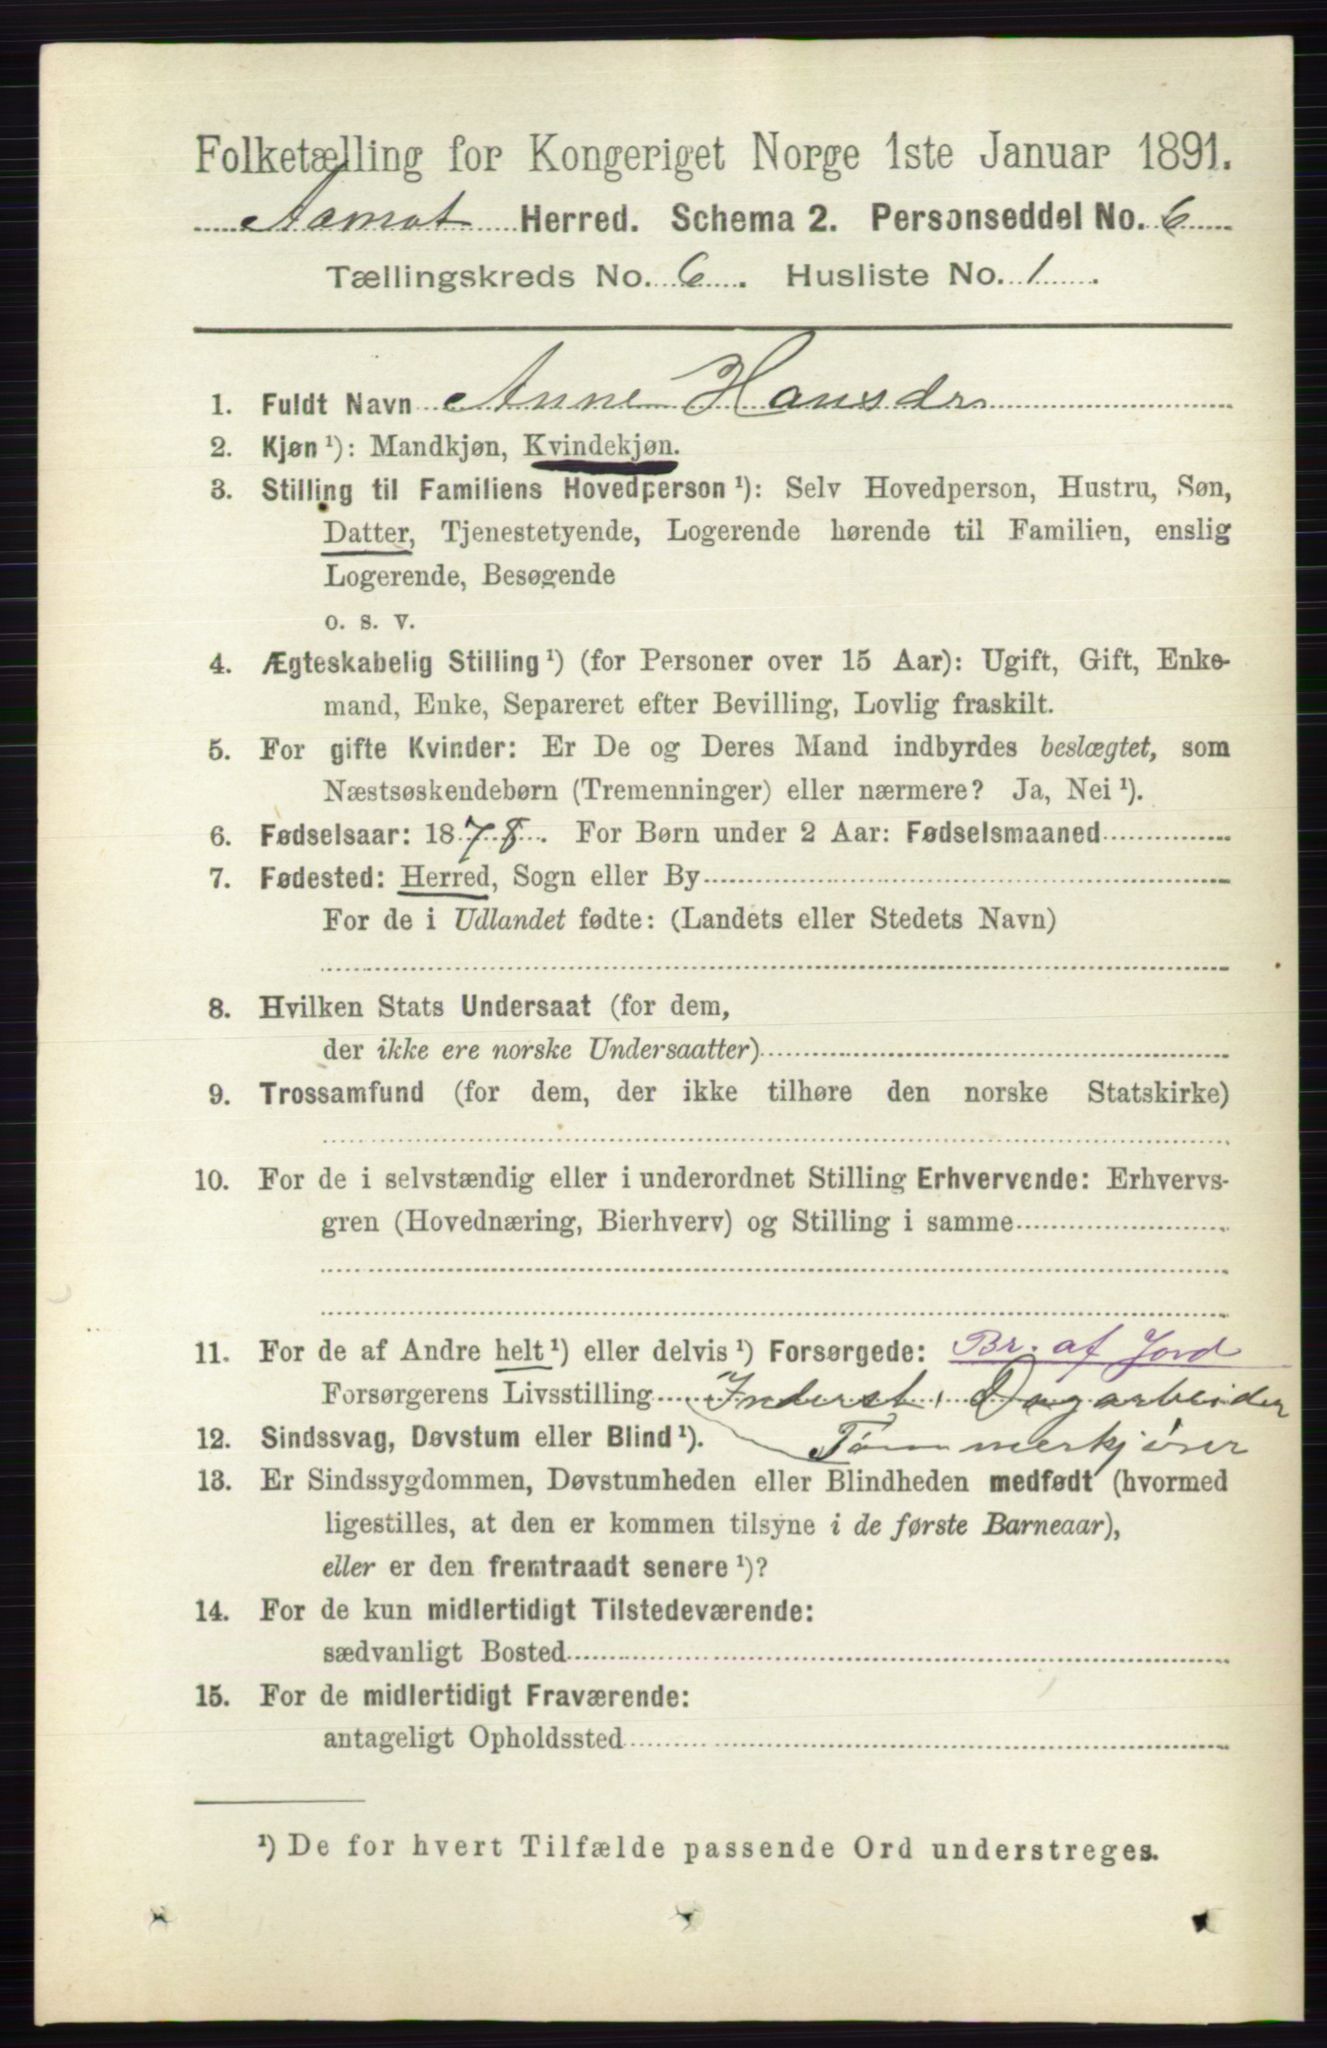 Folketælling for Kongeriget Norge 1ste Januar 1891.
Aamot Herred. Schema 2. Personseddel No. 6
Tællingskreds No. 6. Husliste No. 1.
1. Fuldt Navn Anne Hansdr
2. Kjøn ¹): Mandkjøn, Kvindekjøn.
3. Stilling til Familiens Hovedperson ¹): Selv Hovedperson, Hustru, Søn,
Datter, Tjenestetyende, Logerende hørende til Familien, enslig
Logerende, Besøgende
o. s. v.
4. Ægteskabelig Stilling ¹) (for Personer over 15 Aar): Ugift, Gift, Enke-
mand, Enke, Separeret efter Bevilling, Lovlig fraskilt.
5. For gifte Kvinder: Er De og Deres Mand indbyrdes beslægtet, som
Næstsøskendebørn (Tremenninger) eller nærmere? Ja, Nei ¹).
6. Fødselsaar: 1878. For Børn under 2 Aar: Fødselsmaaned
7. Fødested: Herred, Sogn eller By
For de i Udlandet fødte: (Landets eller Stedets Navn)
8. Hvilken Stats Undersaat (for dem,
der ikke ere norske Undersaatter)
9. Trossamfund (for dem, der ikke tilhøre den norske Statskirke)
10. For de i selvstændig eller i underordnet Stilling Erhvervende: Erhvervs-
gren (Hovednæring, Bierhverv) og Stilling i samme
11. For de af Andre helt ¹) eller delvis ¹) Forsørgede: Br. af Jord
Forsørgerens Livsstilling Inderst, Dagarbeider
12. Sindssvag, Døvstum eller Blind ¹). Tømmerkjører
13. Er Sindssygdommen, Døvstumheden eller Blindheden medfødt (hvormed
ligestilles, at den er kommen tilsyne i de første Barneaar),
eller er den fremtraadt senere ¹)?
14. For de kun midlertidigt Tilstedeværende:
sædvanligt Bosted
15. For de midlertidigt Fraværende:
antageligt Opholdssted
¹) De for hvert Tilfælde passende Ord understreges.